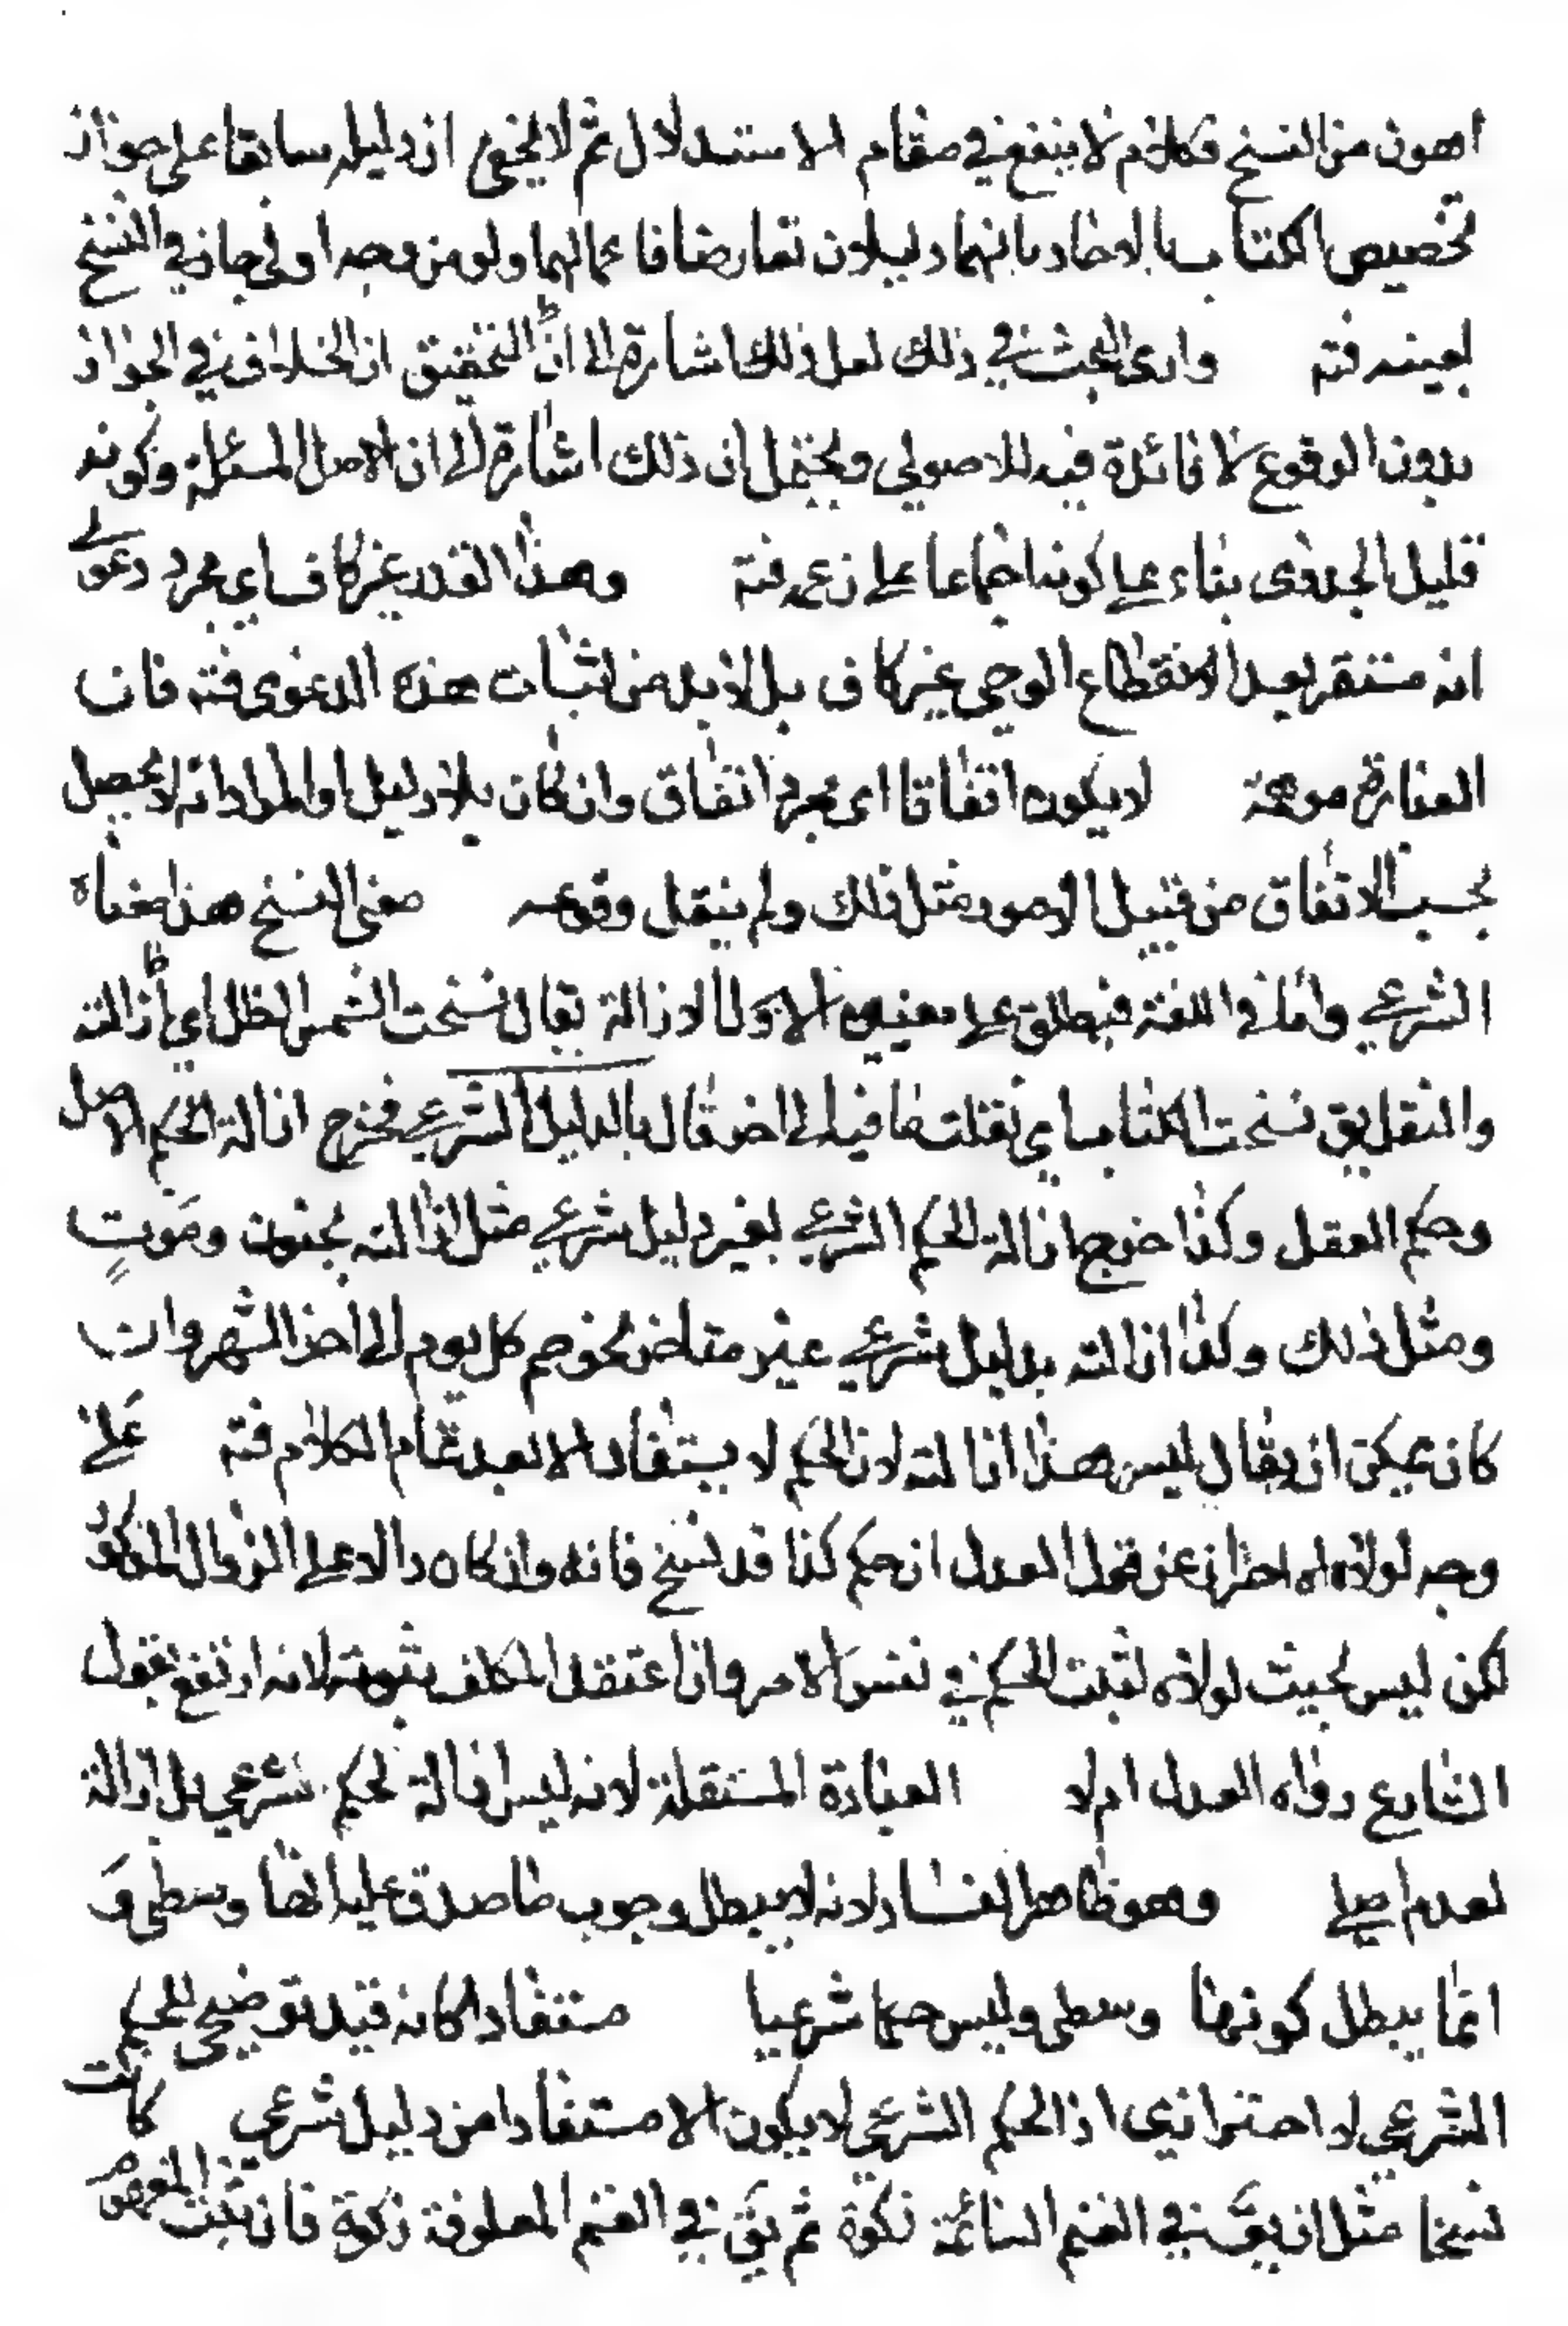 اهون من النسخ فكلام لا ينفع في مقام الاستدلال ثم لا يخفى ان دليله سابقا على جواز
تخصيص الكتاب بالاحاد بانهما دليلان تعارضا فاعمالهما ولو من وجه اولى جار في النسخ
بعينه فتم وادى البحث في ذلك لعل ذلك اشارة الى ان التحقيق ان الخلاف في الجواز
بدون الوقوع لا فائدة فيه للاصولي ويحتمل ان ذلك اشارة الى ان لاصل المسئلة وكونه
قليل الجدوى بناء على كونه اجماعا على زعمه فتم وهذا القدر غير كاف اي مجرد دعوى
انه مستقر بعد انقطاع الوحي غير كاف بل لابد من اثبات هذه الدعوى فتم فان
العبارة موهمة لا يكون اتفاقا اى مجرد اتفاق وان كان بلا دليل او المراد انه لا يحصل
بحسب الاتفاق من قبيل الامور مثل ذلك ولم ينقل وقوعه معنى النسخ هذا معناه
الشرعي واما في اللغة فيطلق على معنيين الاول الازالة يقال نسخت الشمس الظل اي ازالته
والنقل يق نسخت الكتاب اي نقلت ما فيه الى اخر قال بالدليل الشرعي فخرج ازالة الحكم الاصل
وحكم العقل وكذا خرج ازالة الحكم الشرعي بغير دليل شرعي مثل ازالته بجنون وموت
ومثل ذلك وكذا ازالته بدليل شرعي غير متاخر نحو صم كل يوم الى اخر الشهر وان
كان يمكن ان يقال ليس هذا ازالته لان الحكم لا يستفاد الا بعد تمام الكلام فتم على
وجه لولاه اه احتراز عن قول العدل ان حكم كذا قد نسخ فانه وان كان دالا على الزوال المذكور
لكن ليس بحيث لولاه لثبت الحكم في نفس الامر وان اعتقد المكلف ثبوته لانه ارتفع بقول
الشارع رواه العدل ام لا العبادة المستقلة لانه ليس ازالة لحكم شرعي بل ازالة
لعدم اصلي وهو ظاهر الفساد لانه لا يبطل وجوب ما صدق عليه انها وسطى و
انما يبطل كونها وسطى وليس حكما شرعيا مستفادا كانه قيد توضيحي للحكم
الشرعي لا احترازي اذ الحكم الشرعي لا يكون الا مستفادا من دليل شرعي كانت
نسخا مثل ان يق في الغنم السائمة زكوة ثم يق في الغنم المعلوفة زكوة فان ثبت المفهوم